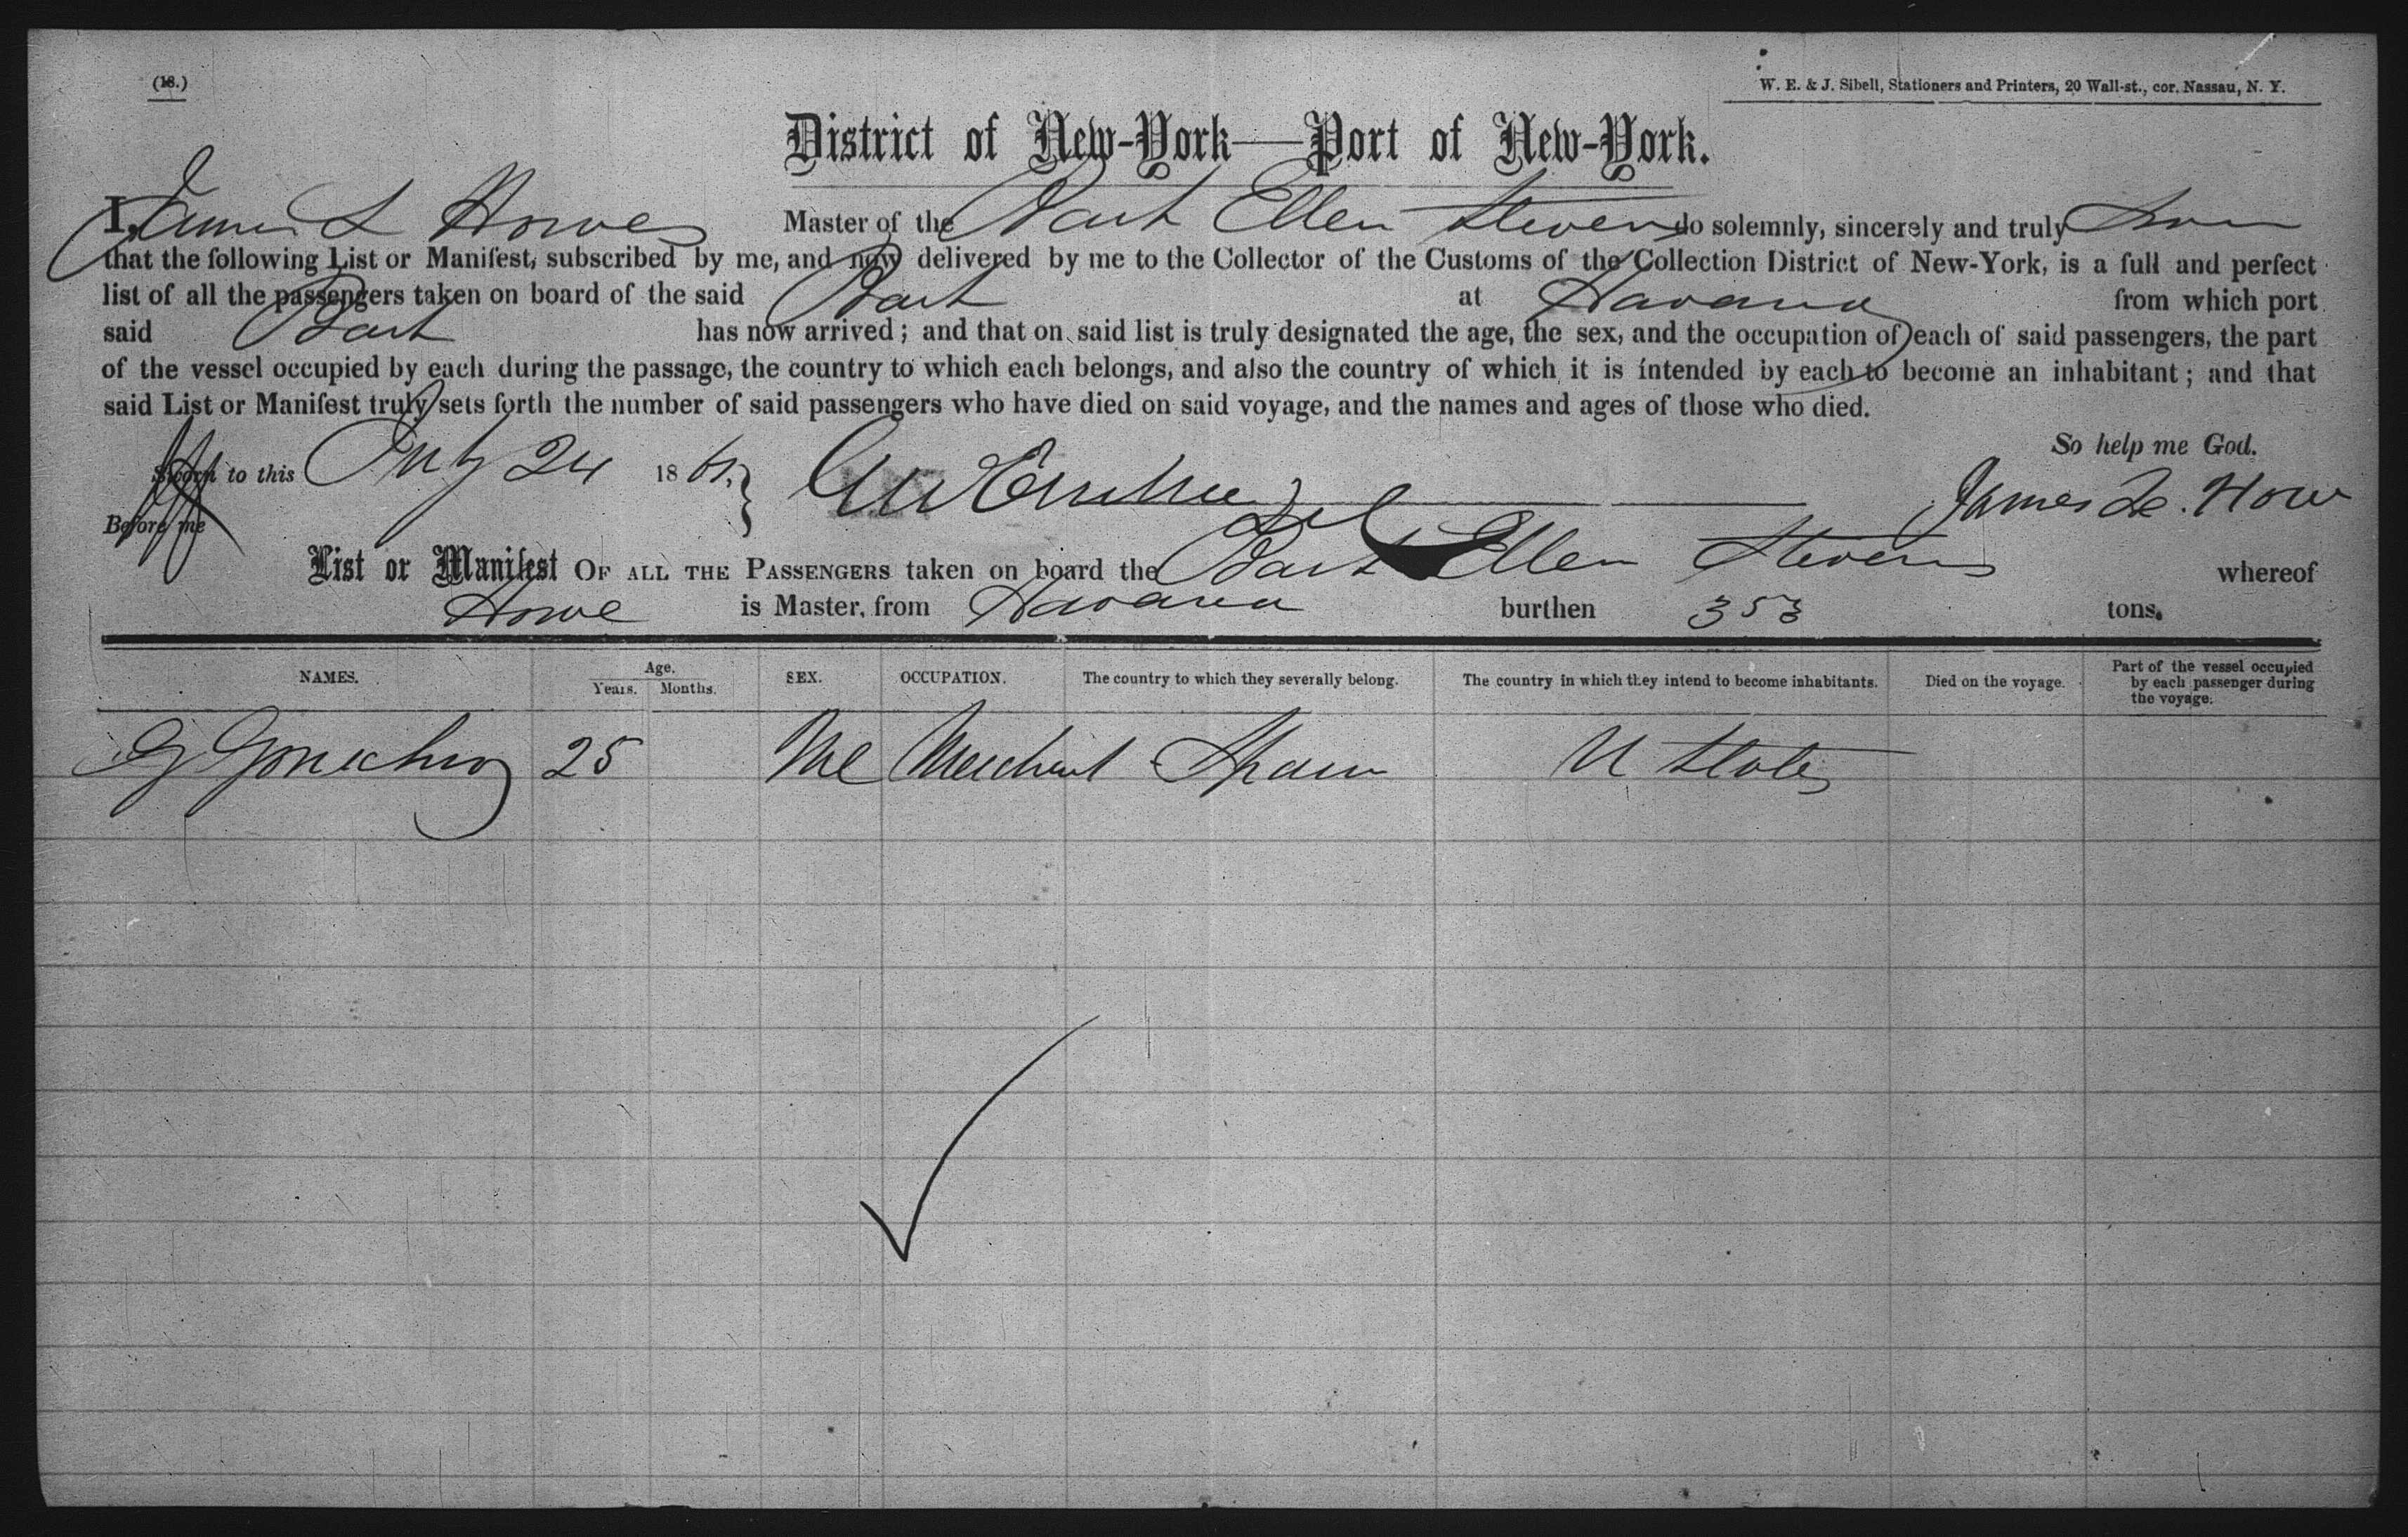 (18.)
W. E. & J. Sibell, Stationers and Printers, 20 Wall-st., cor. Nassau, N. Y.
District of New-York—Port of New-York.
I, James L Howes Master of the Bark Ellen Stevens do solemnly, sincerely and truly
that the following List or Manifest, subscribed by me, and now delivered by me to the Collector of the Customs of the Collection District of New-York, is a full and perfect
list of all the passengers taken on board of the said Bark at Havana from which port
said Bark has now arrived; and that on said list is truly designated the age, the sex, and the occupation of each of said passengers, the part
of the vessel occupied by each during the passage, the country to which each belongs, and also the country of which it is intended by each to become an inhabitant; and that
said List or Manifest truly sets forth the number of said passengers who have died on said voyage, and the names and ages of those who died.
So help me God.
Sworn to this July 24 1861. James L. Howe
Before me
List or Manifest OF ALL THE PASSENGERS taken on board the Bark Ellen Stevens whereof
Howe is Master, from Havana burthen 353 tons.
NAMES. Age. Years. Months. SEX. OCCUPATION. The country to which they severally belong. The country in which they intend to become inhabitants. Died on the voyage. Part of the vessel occupied by each passenger during the voyage.
G 25 Ml Merchant Spain U States